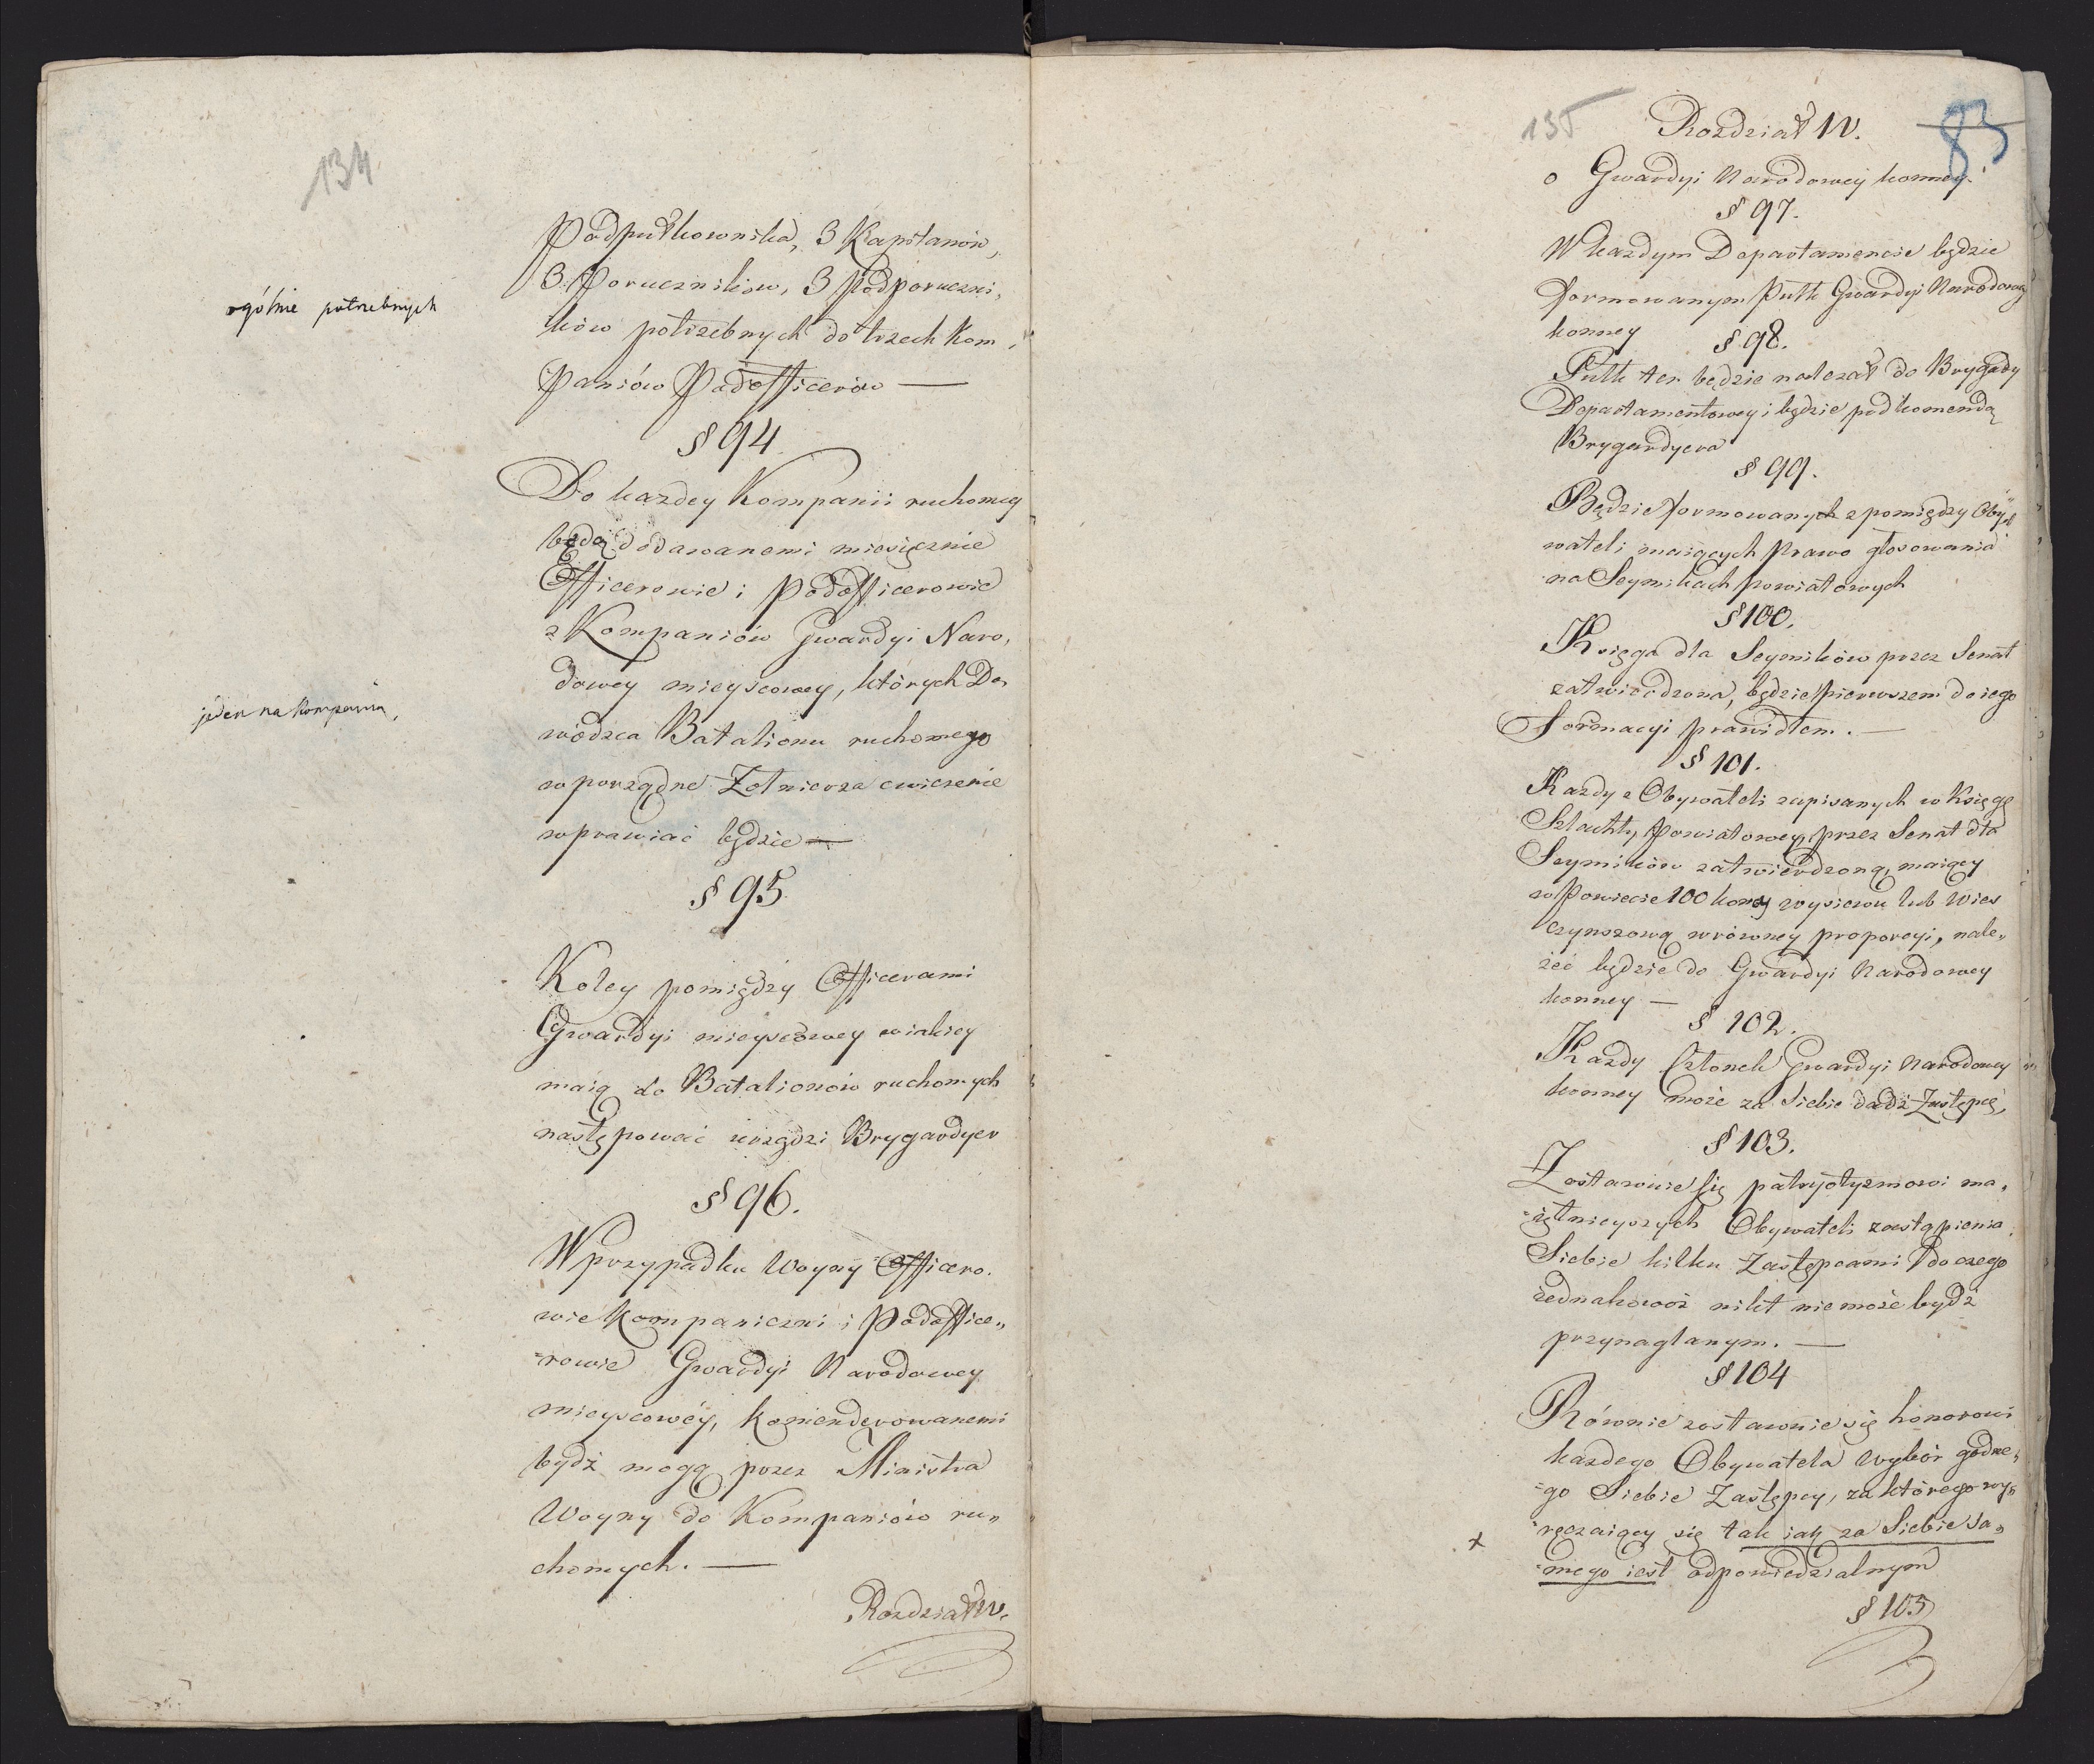 134
Podpułkownika, 3 Kapitanów,
3 Poruczników, 3 Podporuczni,
ków potrzebnych do trzech Kom,
Paniów Podofficerów —
ogólnie potrzebnych
§ 94
Do kazdey Kompanii ruchomey
będą dodawanemi miesięcznie
Officerowie i Podofficerowie
z Kompaniów Gwardyi Naro,
dowey mieyscowey, których Do,
jeden na kompanią,
wódzca Batalionu ruchomego
w porządne Żołnierza cwiczenie
wprawiać będzie —
§ 95.
Koley pomiędzy Officerami
Gwardyi mieyscowey w iakiey
maią do Batalionów ruchomych
następować urzędzi Brygardyer
§ 96.
W przypadku Woyny Officero.
wie Kompaniczni i Podoffice„
=rowie Gwardyi Narodowey
mieyscowéy, kommenderowanemi
bydź mogą przez Ministra
Woyny do Kompaniów ru„
chomych. —
Rozdział IV.
135
83
Rozdział IV.
o Gwardyi Narodowey konney.
§ 97.
W kazdym Departamencie będzie
Formowanym Pułk Gwardyi Narodowey
konney
§ 98.
Pułk ten będzie należał do Brygady
Departamentowey i będzie pod komendą
Brygardyera
§ 99.
Będzie formowanych z pomiędzy Oby„
wateli maiących Prawo głosowania
na Seymikach powiatowych
§ 100.
Księga dla Seymików przez Senat
zatwierdzona, będzie pierwszem do iego
Formacyi prawidłem. —
§ 101.
Kazdy z Obywateli zapisanych w Księgę
Szlachty Powiatowey, przez Senat dla
Seymików zatwierdzoną, maiący
w Powiecie 100 korcy wysiewu lub Wies
czynszową w równey proporcyi, nale„
żéć będzie do Gwardyi Narodowey
konney —
§ 102.
Kazdy Członek Gwardyi Narodowey
konney może za Siebie dadź Zastępcę,
§ 103.
Zostawuie się patryotyzmowi ma,
=iętnieyszych Obywateli zastąpienia
Siebie kilku Zastępcami do czego
iednakowoż nikt nie może bydź
przynaglanym. —
§ 104
Równie zostawuie się honorowi
kazdego Obywatela wybór godne„
=go Siebie Zastępcy, za którego wy„
x =ręczaiący się tak iak za Siebie sa„
=mego iest odpowiedzialnym
§ 105